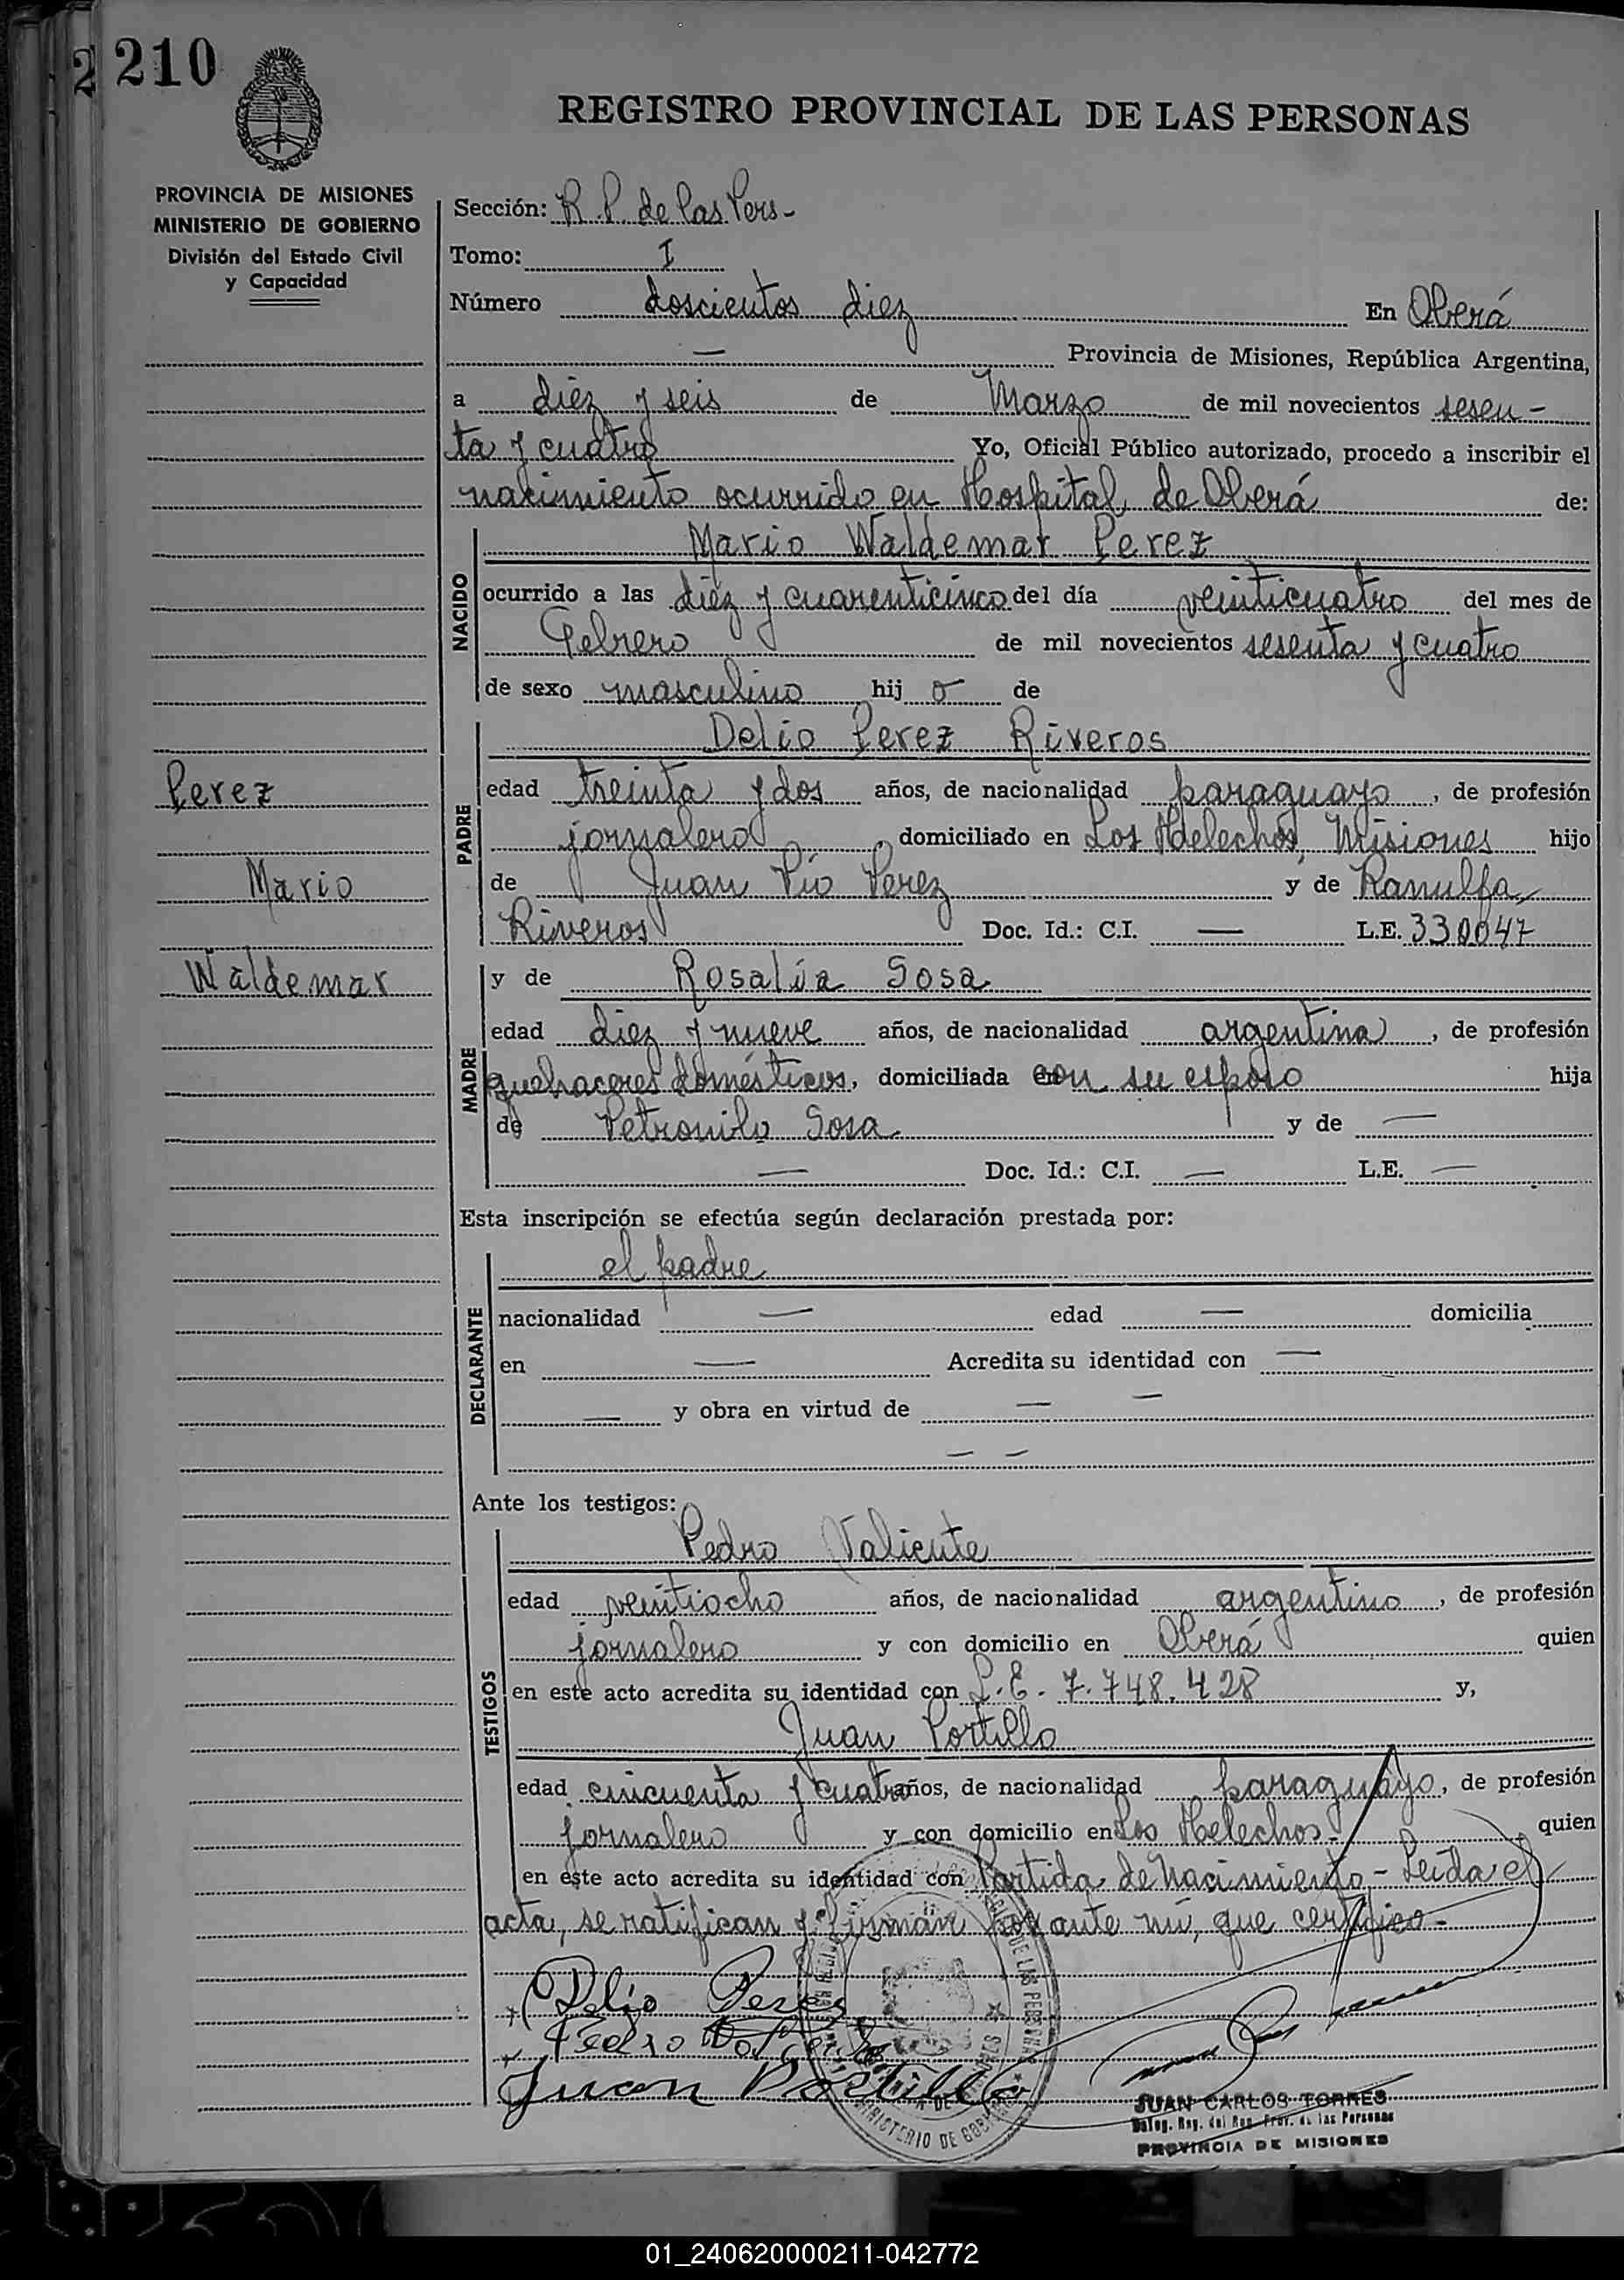 210
REGISTRO PROVINCIAL DE LAS PERSONAS
PROVINCIA DE MISIONES
MINISTERIO DE GOBIERNO
División del Estado Civil
y Capacidad
Sección: R. P. de las Pers-
Tomo: I
Número doscientos diez En Oberá
— Provincia de Misiones, República Argentina,
a diez y seis de Marzo de mil novecientos sesen-
ta y cuatro Yo, Oficial Público autorizado, procedo a inscribir el
nacimiento ocurrido en Hospital de Oberá de:
NACIDO
Mario Waldemar Perez
ocurrido a las diez y cuarenticinco del día veinticuatro del mes de
Febrero de mil novecientos sesenta y cuatro
de sexo masculino hij o de
PADRE
Delio Perez Riveros
Perez
edad treinta y dos años, de nacionalidad paraguayo, de profesión
jornalero, domiciliado en Los Helechos, Misiones hijo
Mario
de Juan Pío Perez y de Ranulfa
Riveros Doc. Id.: C.I. — L.E. 330047
Waldemar
MADRE
y de Rosalía Sosa
edad diez y nueve años, de nacionalidad argentina, de profesión
quehaceres domésticos, domiciliada con su esposo hija
de Petronilo Sosa y de —
— Doc. Id.: C.I. — L.E. —
Esta inscripción se efectúa según declaración prestada por:
DECLARANTE
el padre
nacionalidad — edad — domicilia
en — Acredita su identidad con —
— y obra en virtud de — —
— —
Ante los testigos:
TESTIGOS
Pedro Valiente
edad veintiocho años, de nacionalidad argentino, de profesión
jornalero y con domicilio en Oberá quien
en este acto acredita su identidad con L.E. 7.748.428 y,
Juan Portillo
edad cincuenta y cuatro años, de nacionalidad paraguayo, de profesión
jornalero y con domicilio en Los Helechos- quien
en este acto acredita su identidad con Partida de Nacimiento - Leída el
acta, se ratifican y firman por ante mí, que certifico-
Delio Perez
Pedro Valiente
Juan Portillo
MINISTERIO DE GOBIERNO
JUAN CARLOS TORRES
Prov. de las Personas
PROVINCIA DE MISIONES
01_240620000211-042772